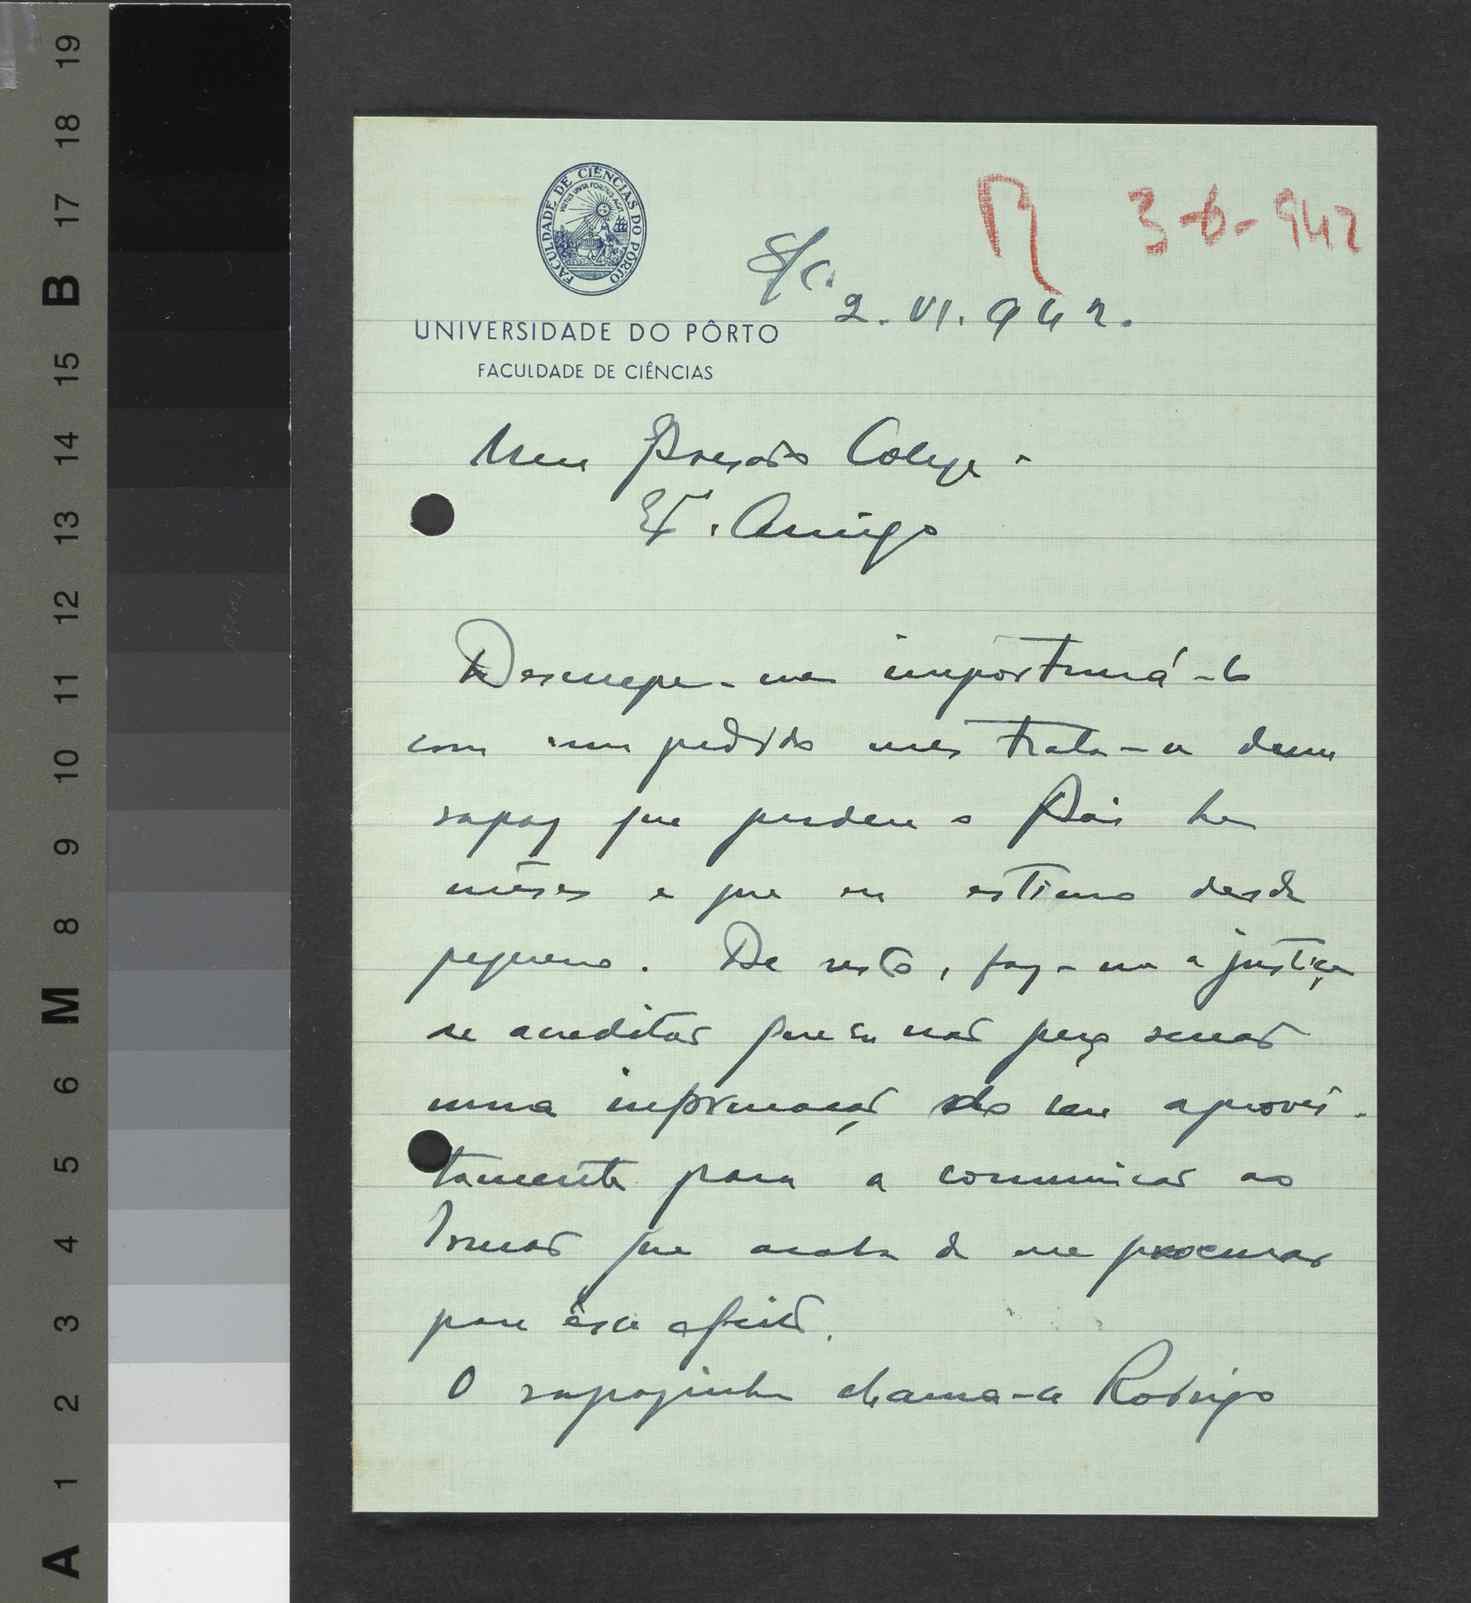 FACULDADE DE CIÊNCIAS DO PORTO
R 3-6-942
S/c.
2. VI. 942.
UNIVERSIDADE DO PÔRTO
FACULDADE DE CIÊNCIAS
Meu Presado Colega
e Amigo
Desculpe-me importuná-lo
com um pedido mas trata-se dum
rapaz que perdeu o Pai ha
mêses e que eu estimo desde
pequeno. De resto, faz-me a justiça
de acreditar que eu não peço senão
uma informação do seu aprovei-
tamento para a comunicar ao
Irmão que acaba de me procurar
para êsse efeito.
O rapazinho chama-se Rodrigo
19
18
17
B
15
14
13
12
11
10
9
8
M
6
5
4
3
2
1
A